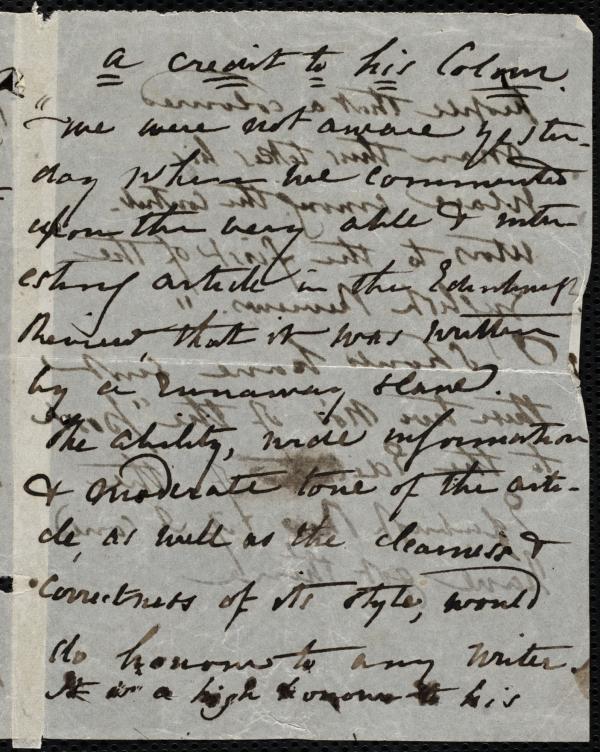 a credit to his Colour.
"We were not aware yester-
day when we commented
upon the very able & inter-
esting article in the Edinburgh
Review, that it was written
by a runaway slave.
The ability, wide information
& moderate tone of the arti-
cle, as well as the clearness &
correctness of its style, would
do honour to any writer.
It is a high honour to his